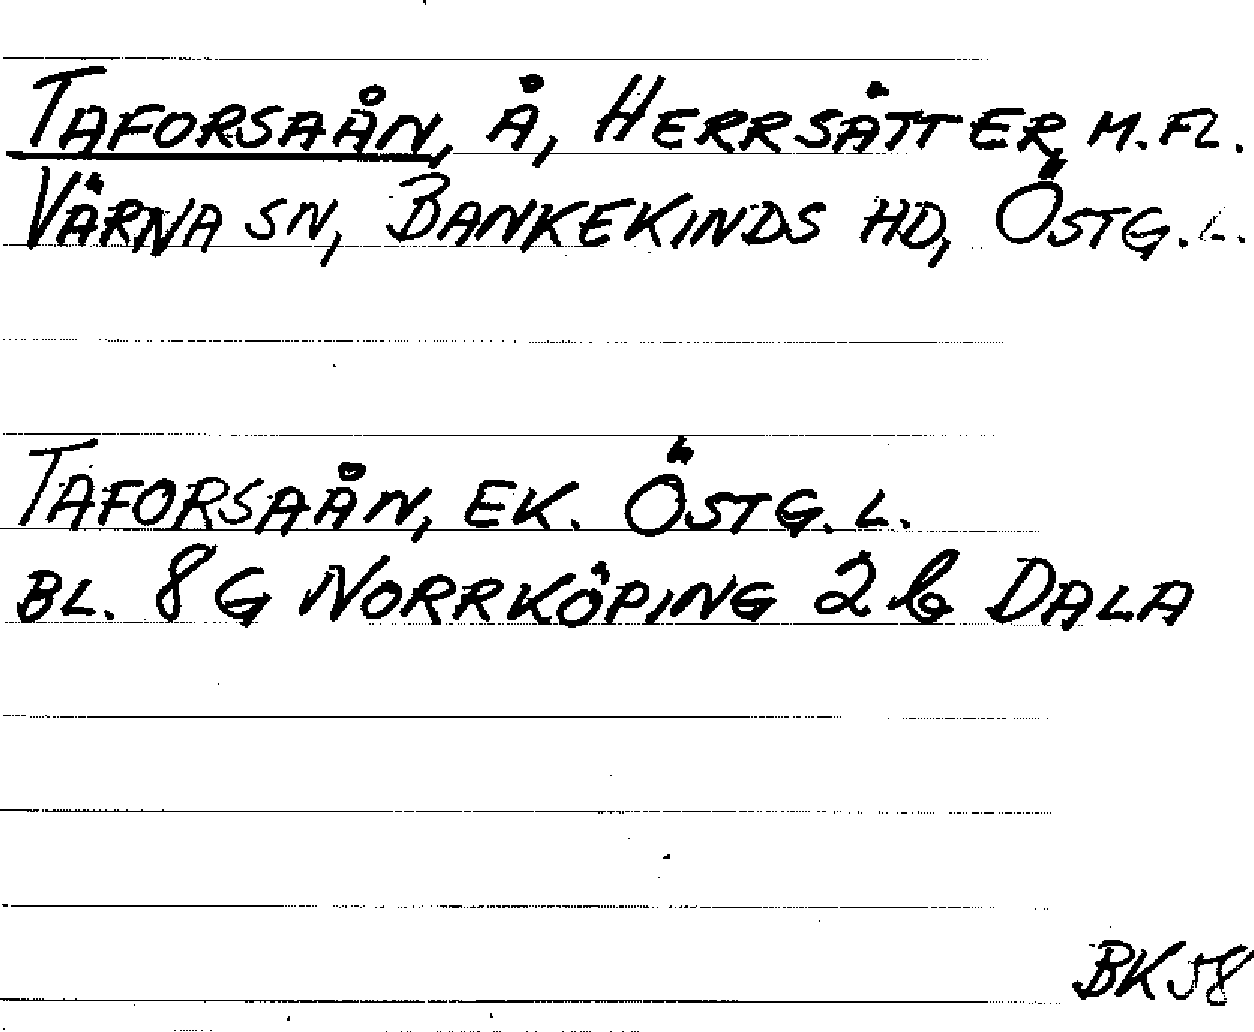 TAFORSAÅN, Å, HERRSÄTTER, M.FL.
VÄRNA SN, BANKEKINDS HD, ÖSTG.L.
TAFORSAÅN, EK. ÖSTG.L.
BL. 8 G NORRKÖPING 2 b DALA
BK 58